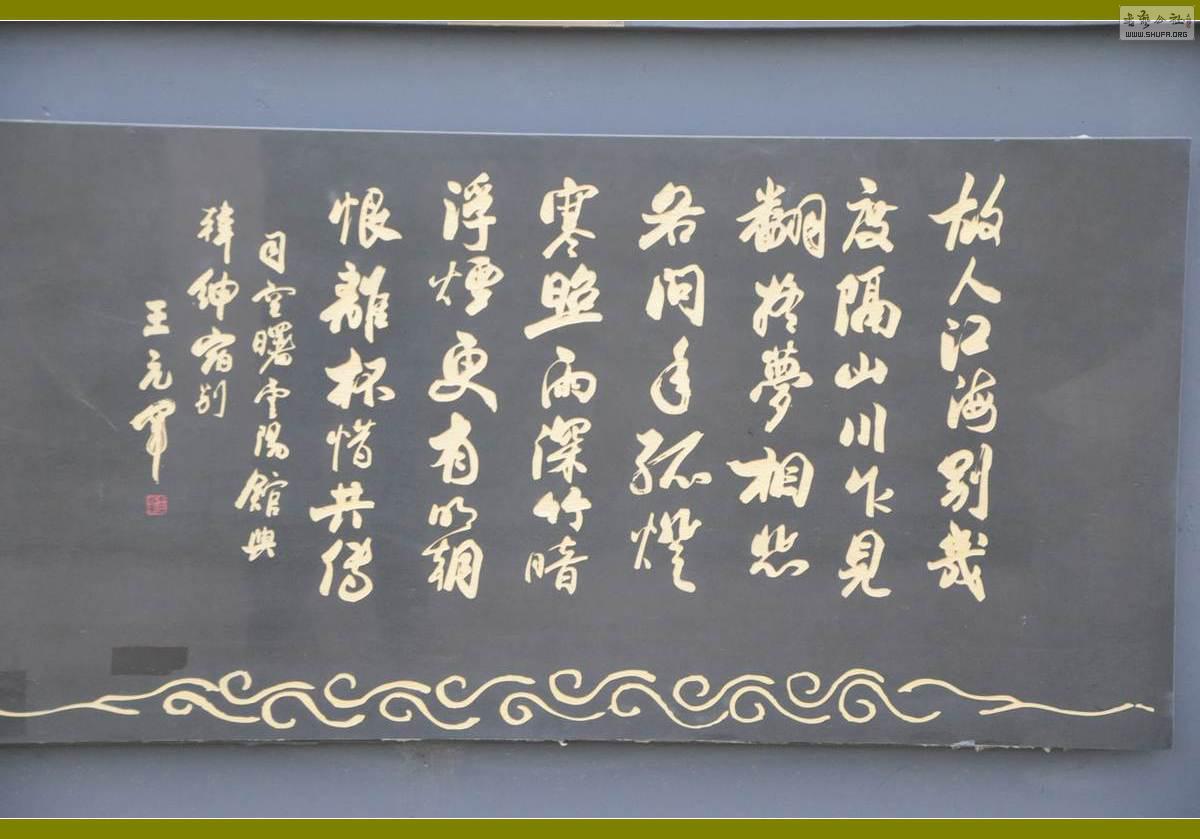 故人江海别幾
度隔山川乍見
翻疑夢相悲
各问年孤燈
寒照雨深竹暗
浮煙更有明朝
恨離杯惜共傳
司空曙雲陽館與
韓紳宿别
王元軍
書藝公社
WWW.SHUFA.ORG